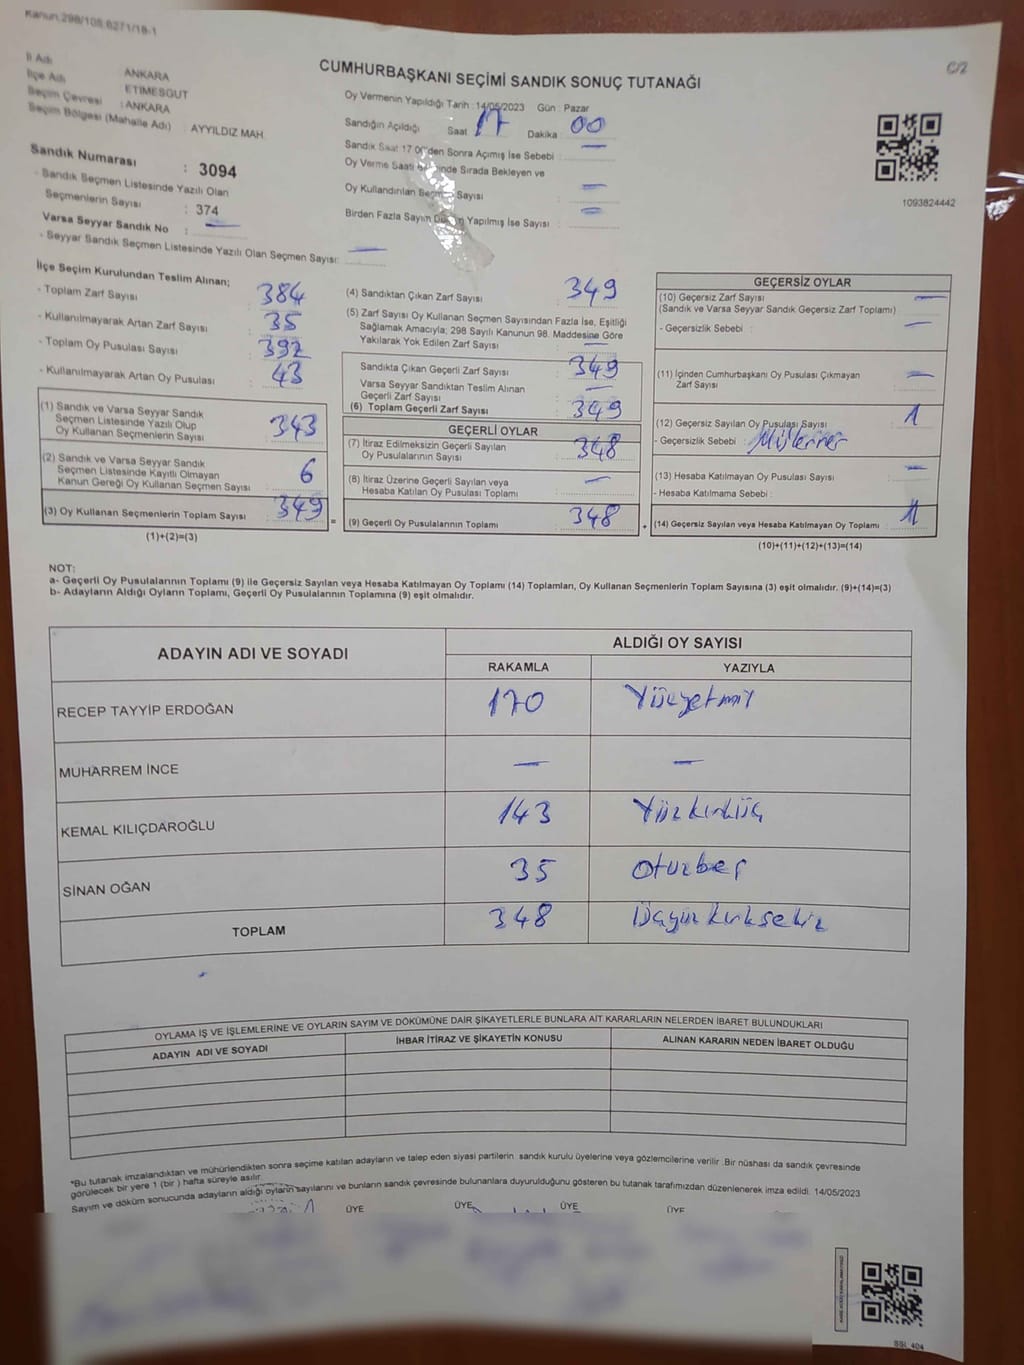 Kanun:298/105.6271/18-1
C/2
CUMHURBAŞKANI SEÇİMİ SANDIK SONUÇ TUTANAĞI
İl Adı
ANKARA
İlçe Adı
ETİMESGUT
Seçim Çevresi
: ANKARA
Seçim Bölgesi (Mahalle Adı) : AYYILDIZ MAH.
Sandık Numarası : 3094
- Sandık Seçmen Listesinde Yazılı Olan
Seçmenlerin Sayısı : 374
Varsa Seyyar Sandık No : —
- Seyyar Sandık Seçmen Listesinde Yazılı Olan Seçmen Sayısı: —
Oy Vermenin Yapıldığı Tarih : 14/05/2023 Gün : Pazar
Sandığın Açıldığı Saat 17 Dakika 00
Sandık Saat 17.00'den Sonra Açımış İse Sebebi : —
Oy Verme Saati Sırada Bekleyen ve
Oy Kullandırılan Sayısı —
Birden Fazla Sayım Yapılmış İse Sayısı : —
1093824442
İlçe Seçim Kurulundan Teslim Alınan;
- Toplam Zarf Sayısı 384
- Kullanılmayarak Artan Zarf Sayısı 35
- Toplam Oy Pusulası Sayısı 392
- Kullanılmayarak Artan Oy Pusulası 43
(1) Sandık ve Varsa Seyyar Sandık
Seçmen Listesinde Yazılı Olup
Oy Kullanan Seçmenlerin Sayısı 343
(2) Sandık ve Varsa Seyyar Sandık
Seçmen Listesinde Kayıtlı Olmayan
Kanun Gereği Oy Kullanan Seçmen Sayısı 6
(3) Oy Kullanan Seçmenlerin Toplam Sayısı 349
(1)+(2)=(3)
(4) Sandıktan Çıkan Zarf Sayısı 349
(5) Zarf Sayısı Oy Kullanan Seçmen Sayısından Fazla İse, Eşitliği
Sağlamak Amacıyla; 298 Sayılı Kanunun 98. Maddesine Göre
Yakılarak Yok Edilen Zarf Sayısı —
Sandıkta Çıkan Geçerli Zarf Sayısı 349
Varsa Seyyar Sandıktan Teslim Alınan
Geçerli Zarf Sayısı —
(6) Toplam Geçerli Zarf Sayısı 349
GEÇERLİ OYLAR
(7) İtiraz Edilmeksizin Geçerli Sayılan
Oy Pusulalarının Sayısı 348
(8) İtiraz Üzerine Geçerli Sayılan veya
Hesaba Katılan Oy Pusulası Toplamı —
(9) Geçerli Oy Pusulalarının Toplamı 348
=
+
GEÇERSİZ OYLAR
(10) Geçersiz Zarf Sayısı —
(Sandık ve Varsa Seyyar Sandık Geçersiz Zarf Toplamı)
- Geçersizlik Sebebi : —
(11) İçinden Cumhurbaşkanı Oy Pusulası Çıkmayan
Zarf Sayısı —
(12) Geçersiz Sayılan Oy Pusulası Sayısı 1
- Geçersizlik Sebebi :
(13) Hesaba Katılmayan Oy Pusulası Sayısı —
- Hesaba Katılmama Sebebi :
(14) Geçersiz Sayılan veya Hesaba Katılmayan Oy Toplamı : 1
(10)+(11)+(12)+(13)=(14)
NOT:
a- Geçerli Oy Pusulalarının Toplamı (9) ile Geçersiz Sayılan veya Hesaba Katılmayan Oy Toplamı (14) Toplamları, Oy Kullanan Seçmenlerin Toplam Sayısına (3) eşit olmalıdır. (9)+(14)=(3)
b- Adayların Aldığı Oyların Toplamı, Geçerli Oy Pusulalarının Toplamına (9) eşit olmalıdır.
ADAYIN ADI VE SOYADI
ALDIĞI OY SAYISI
RAKAMLA YAZIYLA
RECEP TAYYİP ERDOĞAN 170 Yüzyetmiş
MUHARREM İNCE — —
KEMAL KILIÇDAROĞLU 143 Yüzkırküç
SİNAN OĞAN 35 Otuzbeş
TOPLAM 348 Üçyüzkırksekiz
OYLAMA İŞ VE İŞLEMLERİNE VE OYLARIN SAYIM VE DÖKÜMÜNE DAİR ŞİKAYETLERLE BUNLARA AİT KARARLARIN NELERDEN İBARET BULUNDUKLARI
ADAYIN ADI VE SOYADI İHBAR İTİRAZ VE ŞİKAYETİN KONUSU ALINAN KARARIN NEDEN İBARET OLDUĞU
"Bu tutanak imzalandıktan ve mühürlendikten sonra seçime katılan adayların ve talep eden siyasi partilerin sandık kurulu üyelerine veya gözlemcilerine verilir. Bir nüshası da sandık çevresinde
görülecek bir yere 1 (bir ) hafta süreyle asılır.
Sayım ve döküm sonucunda adayların aldığı oyların sayılarını ve bunların sandık çevresinde bulunanlara duyurulduğunu gösteren bu tutanak tarafımızdan düzenlenerek imza edildi. 14/05/2023
ÜYE ÜYE ÜYE ÜYE